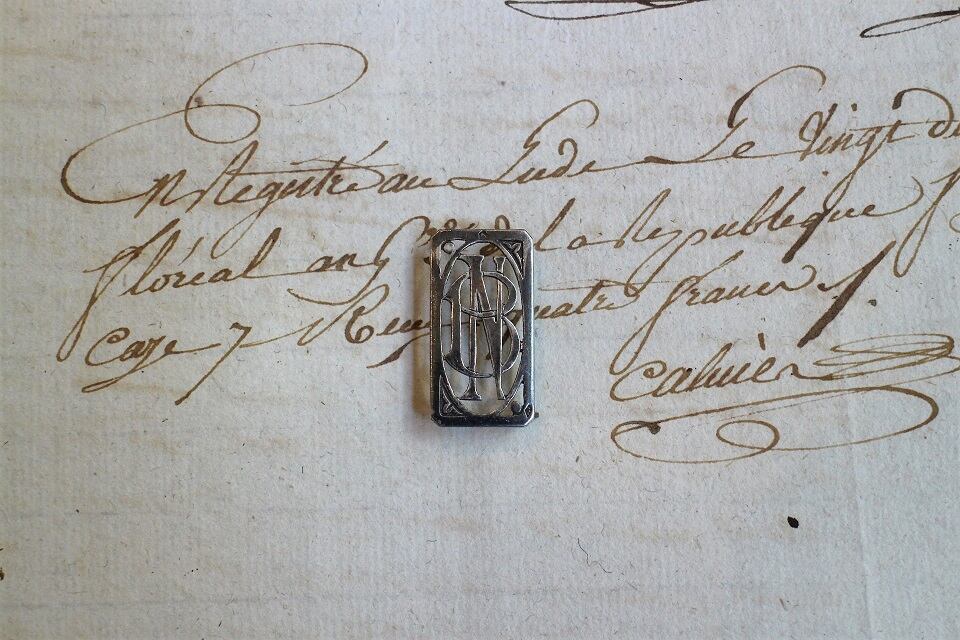 Enregistré au Lude Le Vingt
floréal an la Republique
Case 7 Reçu quatre francs
Cahier
NB